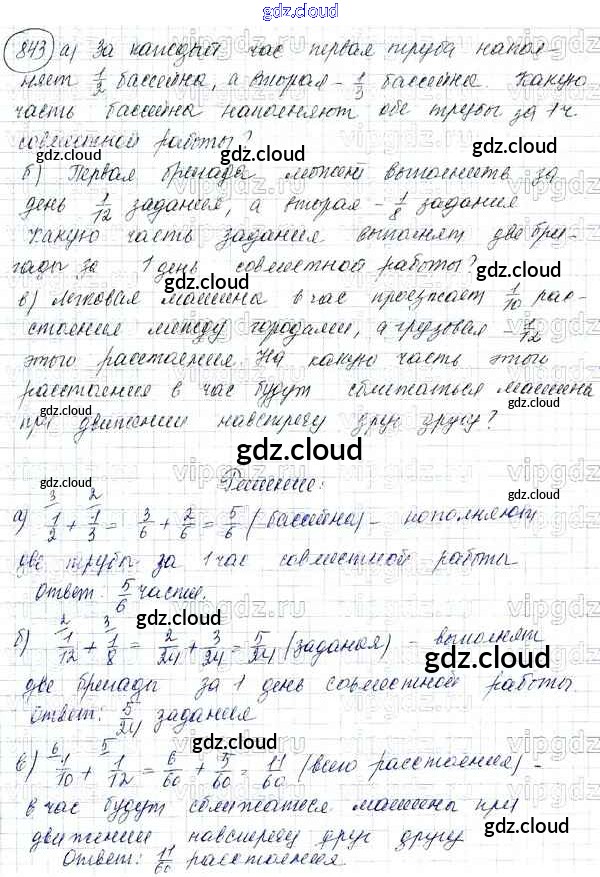 gdz.cloud
843 а) За каждый час первая труба напол-
няет 1/2 бассейна, а вторая - 1/3 бассейна. Какую
часть бассейна наполняют обе трубы за 1 ч
совместной работы?
gdz.cloud
б) Первая бригада может выполнить за
день 1/12 задания, а вторая - 1/8 задания
gdz.cloud
Какую часть задания выполнят две бри-
гады за 1 день совместной работы?
gdz.cloud
в) Легковая машина в час проезжает 1/10 рас-
стояние между городами, а грузовая - 1/12
этого расстояния. На какую часть этого
расстояния в час будут сближаться машины
gdz.cloud gdz.cloud
при движении навстречу друг другу?
gdz.cloud
Решение:
gdz.cloud gdz.cloud
3 2
а) 1/2 + 1/3 = 3/6 + 2/6 = 5/6 (бассейна) - наполняют
две трубы за 1 час совместной работы
Ответ: 5/6 части.
gdz.cloud
2 3
б) 1/12 + 1/8 = 2/24 + 3/24 = 5/24 (задания) - выполнят
gdz.cloud
две бригады за 1 день совместной работы.
Ответ: 5/24 задания
gdz.cloud
6 5
в) 1/10 + 1/12 = 6/60 + 5/60 = 11/60 (всего расстояния) -
gdz.cloud
в час будут сближаться машины при
gdz.cloud
движении навстречу друг другу
gdz.cloud
Ответ: 11/60 расстояния
vipgdz.ru